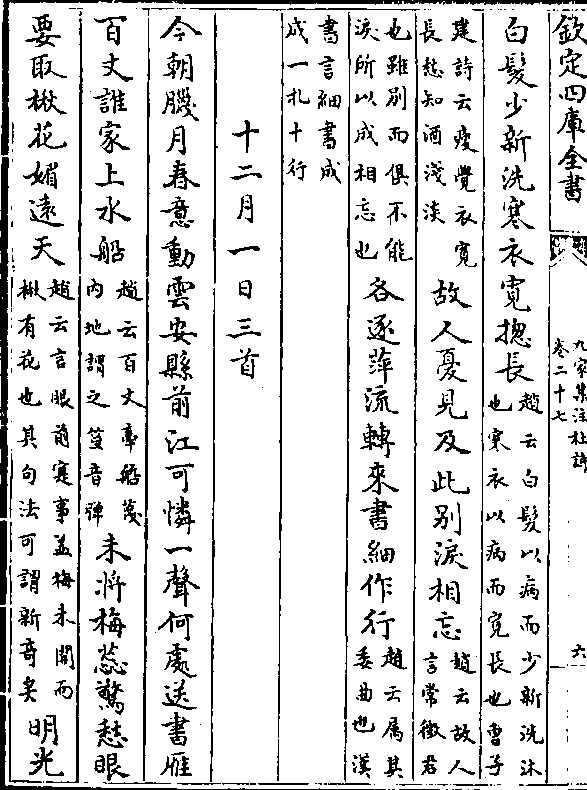 欽定四庫全書
九家集注杜詩
卷二十七
六
白髮少新洗寒衣寛揔長
趙云白髮以病而少新洗沐
也寒衣以病而寛長也曹子
建詩云瘦覺衣寛
長愁知酒淺淡
故人憂見及此别淚相忘
趙云故人
言常徴君
也雖别而俱不能
淚所以成相忘也
各逐萍流轉來書細作行
趙云屬其
委曲也漢
書言細書成
成一札十行
十二月一日三首
今朝臘月春意動雲安縣前江可憐一聲何處送書雁
百丈誰家上水船
趙云百丈牽船篾
内地謂之䈣音彈
未將梅蕊驚愁眼
要取楸花媚遠天
趙云言眼前寔事蓋梅未開而
楸有花也其句法可謂新竒矣
明光